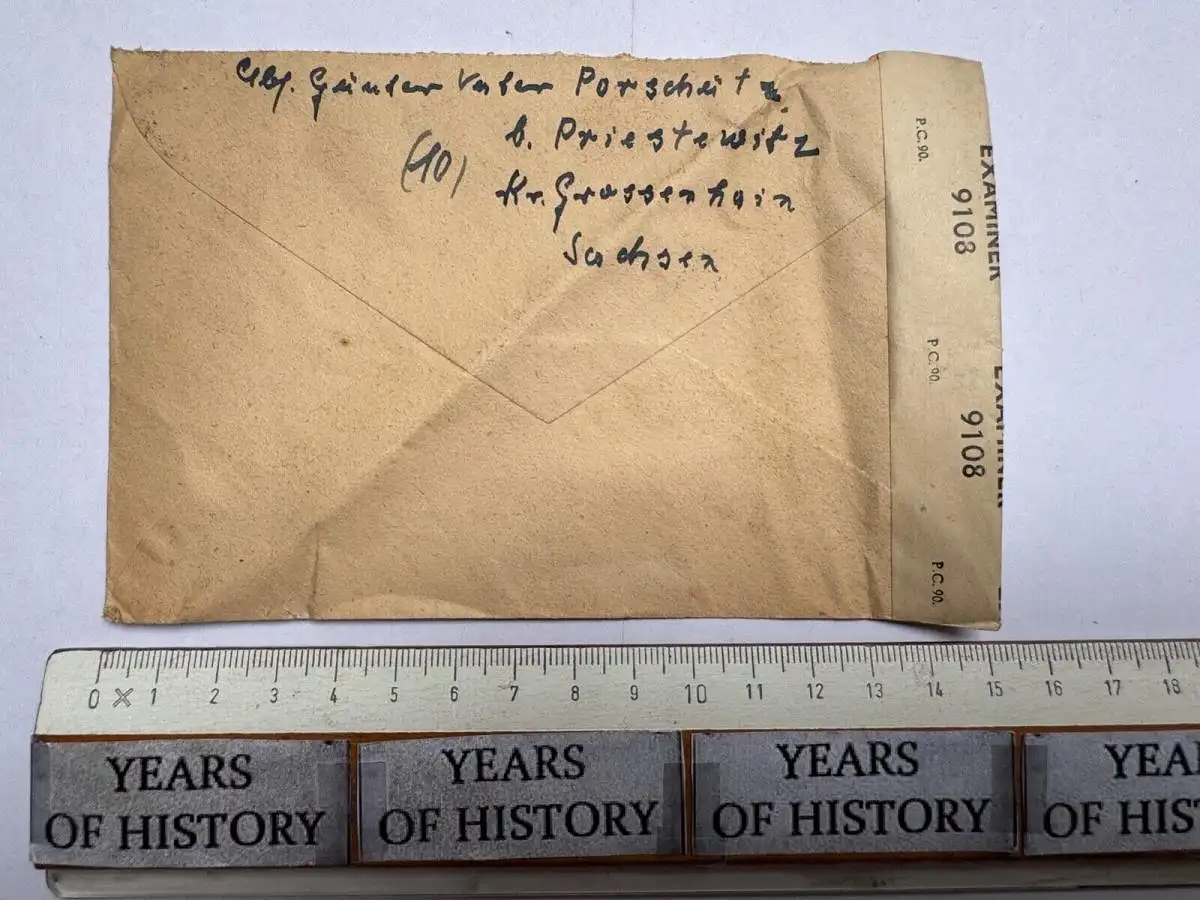 Abs. Günter Vater Porschütz
b. Priestewitz
(10)
Kr. Grossenhain
Sachsen
P.C. 90.
EXAMINER
9108
P.C. 90.
EXAMINER
9108
P.C. 90.
0 1 2 3 4 5 6 7 8 9 10 11 12 13 14 15 16 17 18
YEARS
OF HISTORY
YEARS
OF HISTORY
YEARS
OF HISTORY
YEA
OF HIS